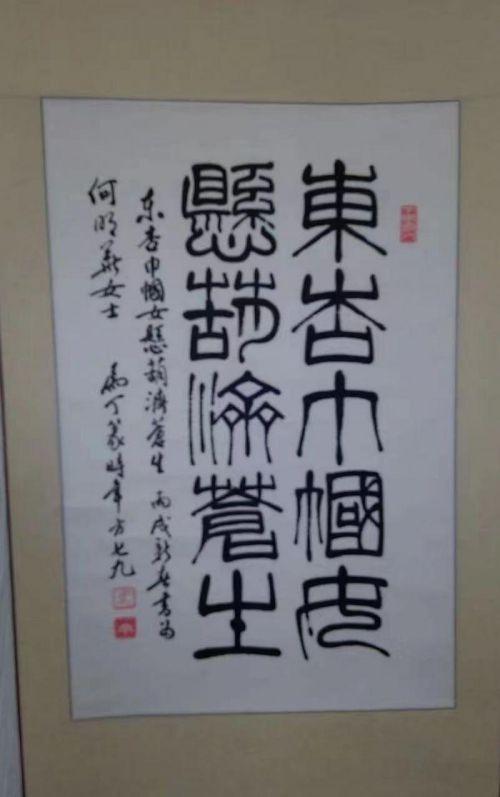 東杏巾帼女
懸葫濟蒼生
东杏巾帼女懸葫濟蒼生 丙戌新春書为
何明華女士 為丁篆時年方七九